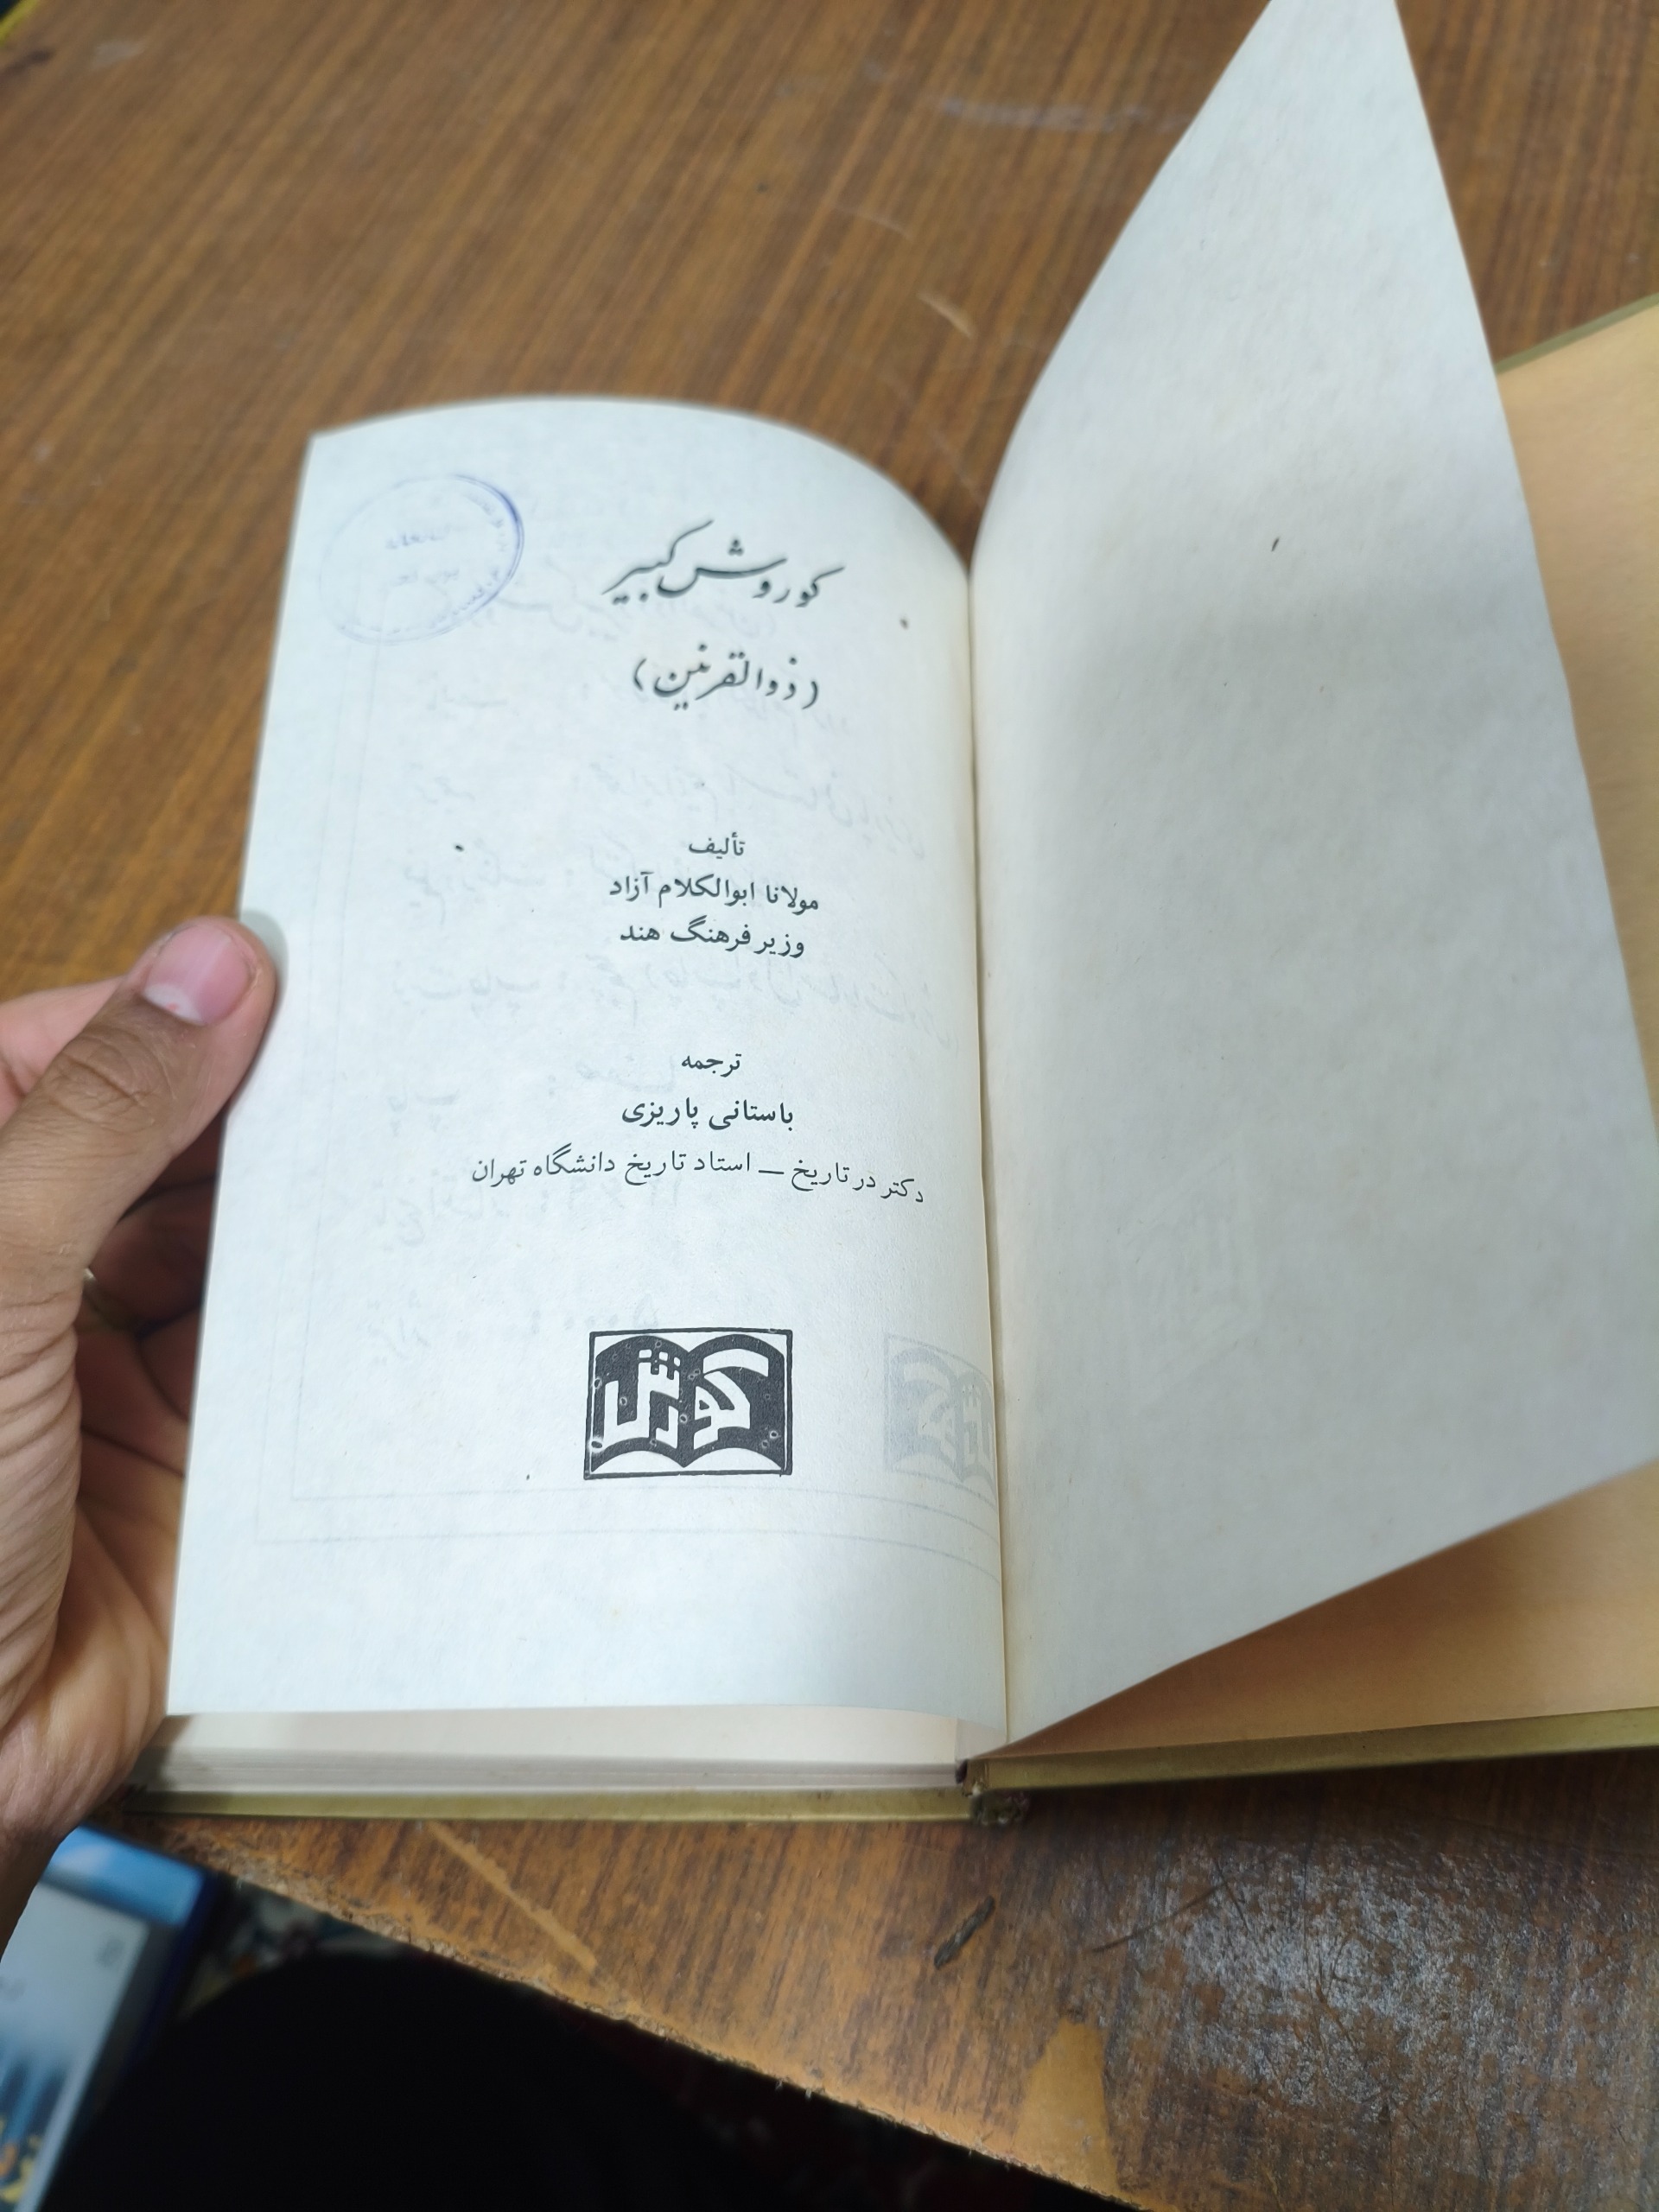 کوروش کبیر
(ذوالقرنین)
تألیف
مولانا ابوالکلام آزاد
وزیر فرهنگ هند
ترجمه
باستانی پاریزی
دکتر در تاریخ ــ استاد تاریخ دانشگاه تهران
کورش